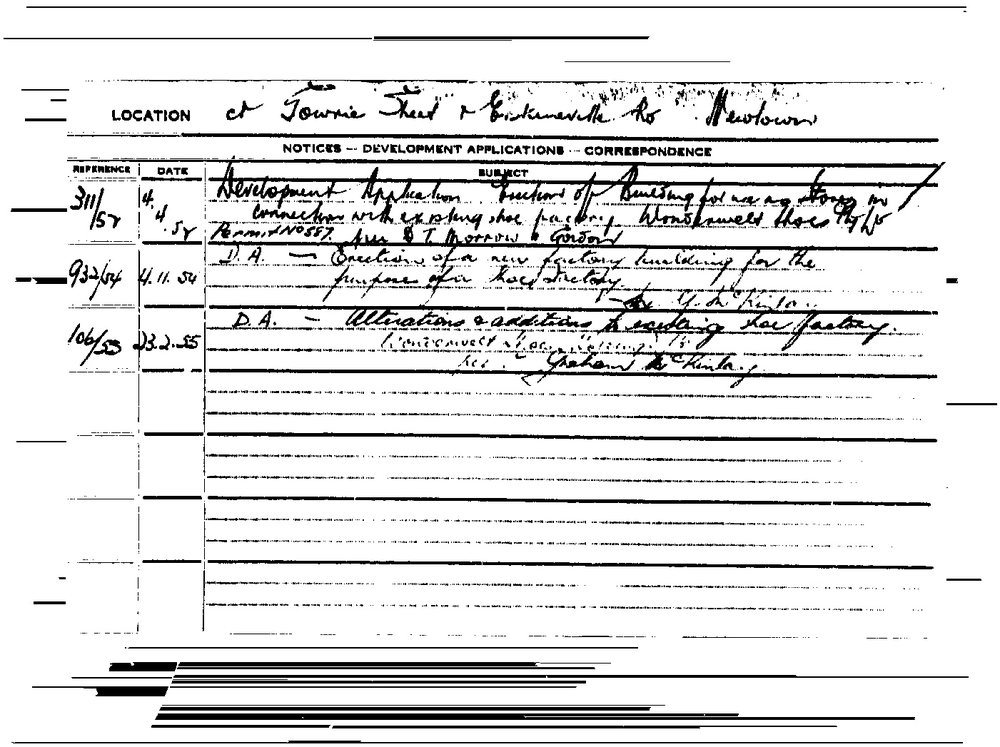 LOCATION cr Gowrie Street & Erskineville Rd Newtown
NOTICES — DEVELOPMENT APPLICATIONS — CORRESPONDENCE
REFERENCE DATE SUBJECT
311/52 4.4.52 Development Application Erection of Building for use as Storey in
connection with existing shoe factory Wonderwelt Shoes Pty Ltd
Permit No 557. per D T. Morrow & Gordon
932/54 4.11.54 D.A. — Erection of a new factory building for the
purposes of a shoe factory
per G. McKinlay
106/55 23.2.55 D.A. — Alterations & additions to existing shoe factory.
Wonderwelt Shoes
per — Graham McKinlay